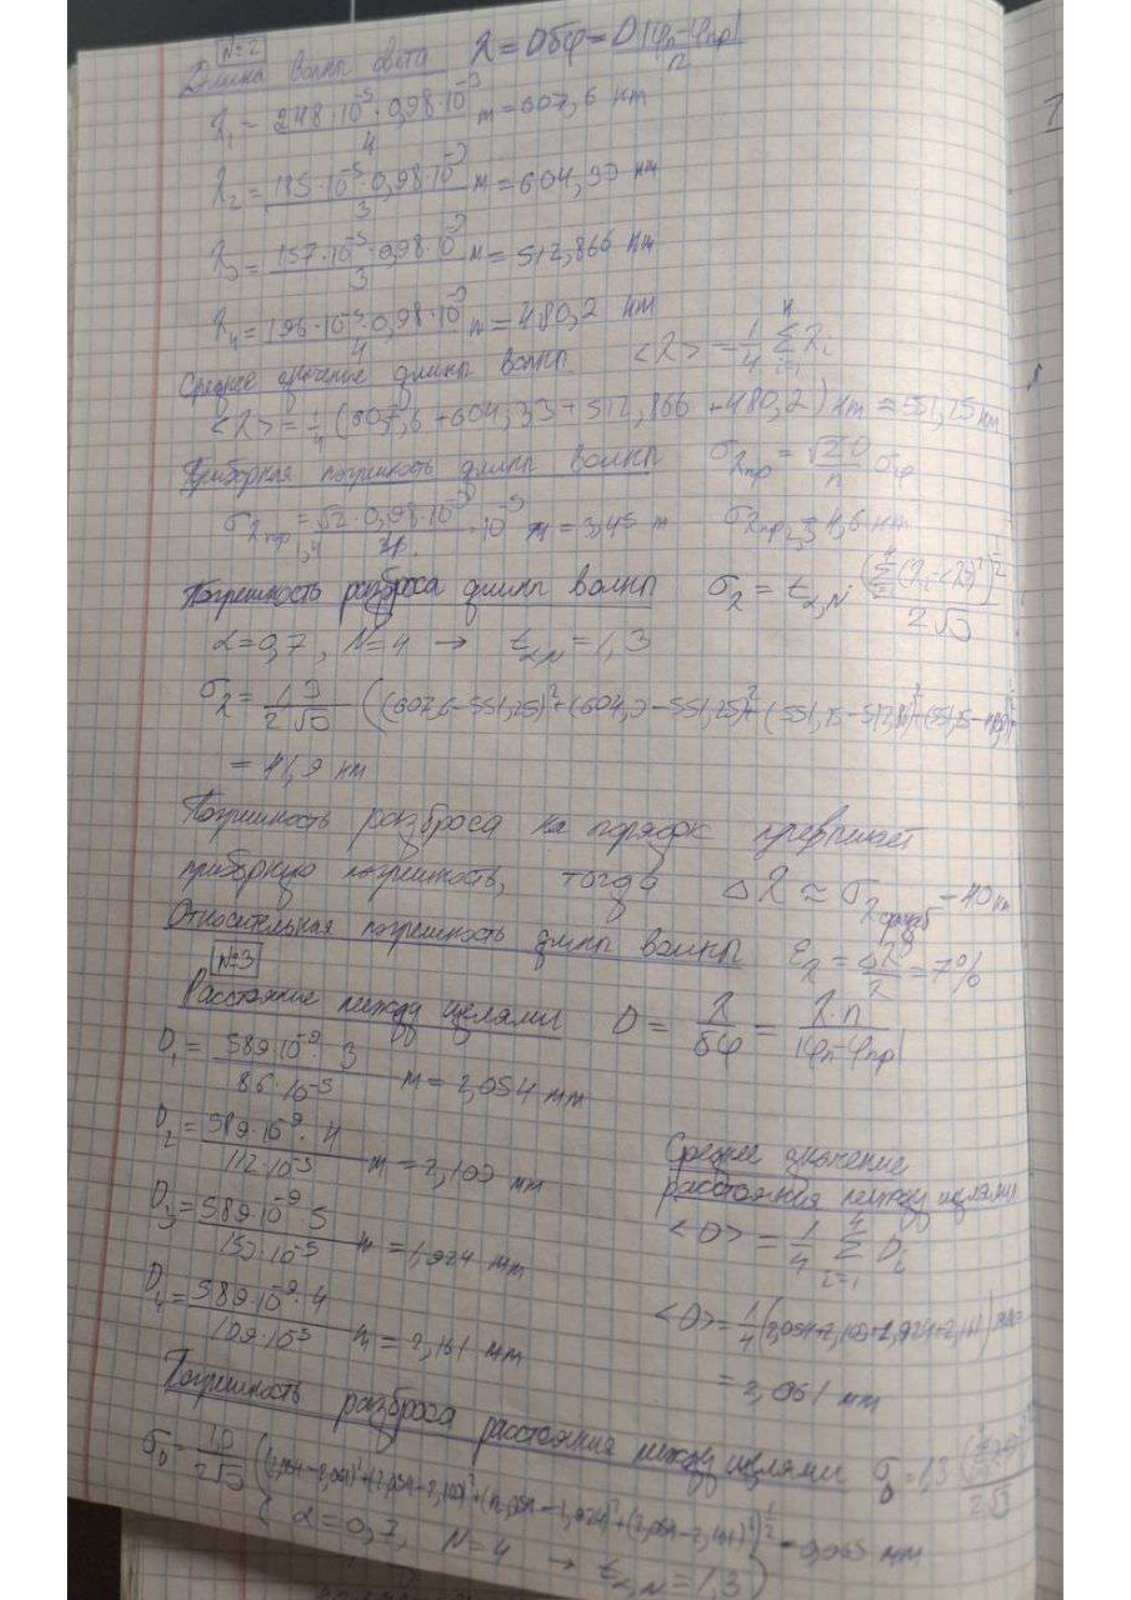 №2
Длина волны света λ = Dδφ = D|φₙ-φₙₚ|/n
λ₁ = 248·10⁻⁵·0,98·10⁻³/4 м = 607,6 нм
λ₂ = 185·10⁻⁵·0,98·10⁻³/3 м = 604,33 нм
λ₃ = 157·10⁻⁵·0,98·10⁻³/3 м = 512,866 нм
λ₄ = 196·10⁻⁵·0,98·10⁻³/4 м = 480,2 нм
Среднее значение длины волны <λ> = 1/4 Σᵢ₌₁⁴ λᵢ
<λ> = 1/4 (607,6 + 604,33 + 512,866 + 480,2) нм = 551,25 нм
Приборная погрешность длины волны σ_λпр = √2 D/n σ_φ
σ_λпр₁,₄ = √2·0,98·10⁻³/4 ·10⁻⁵ м = 3,45 м σ_λпр₂,₃ = 4,6 нм
Погрешность разброса длины волны σ_λ = t_α,N · (Σ(λᵢ-<λ>)²)^½/2√3
α = 0,7, N = 4 → t_α,N = 1,3
σ_λ = 1,3/2√3 ((607,6-551,25)²+(604,3-551,25)²+(551,25-512,8)²+(551,25-480,2)²)^½
= 41,9 нм
Погрешность разброса на порядок превышает
приборную погрешность, тогда Δλ ≈ σ_λразб = 40 нм
Относительная погрешность длины волны ε_λ = Δλ/λ = 7%
№3
Расстояние между щелями D = λ/δφ = λ·n/|φₙ-φₙₚ|
D₁ = 589·10⁻⁹·3/86·10⁻⁵ м = 2,054 мм
D₂ = 589·10⁻⁹·4/112·10⁻⁵ м = 2,103 мм
D₃ = 589·10⁻⁹·5/153·10⁻⁵ м = 1,924 мм
D₄ = 589·10⁻⁹·4/109·10⁻⁵ м = 2,161 мм
Среднее значение
расстояния между щелями
<D> = 1/4 Σᵢ₌₁⁴ Dᵢ
<D> = 1/4 (2,054+2,103+1,924+2,161) мм =
= 2,061 мм
Погрешность разброса расстояния между щелями
= 0,065 мм
α = 0,7, N = 4 → t_α,N = 1,3